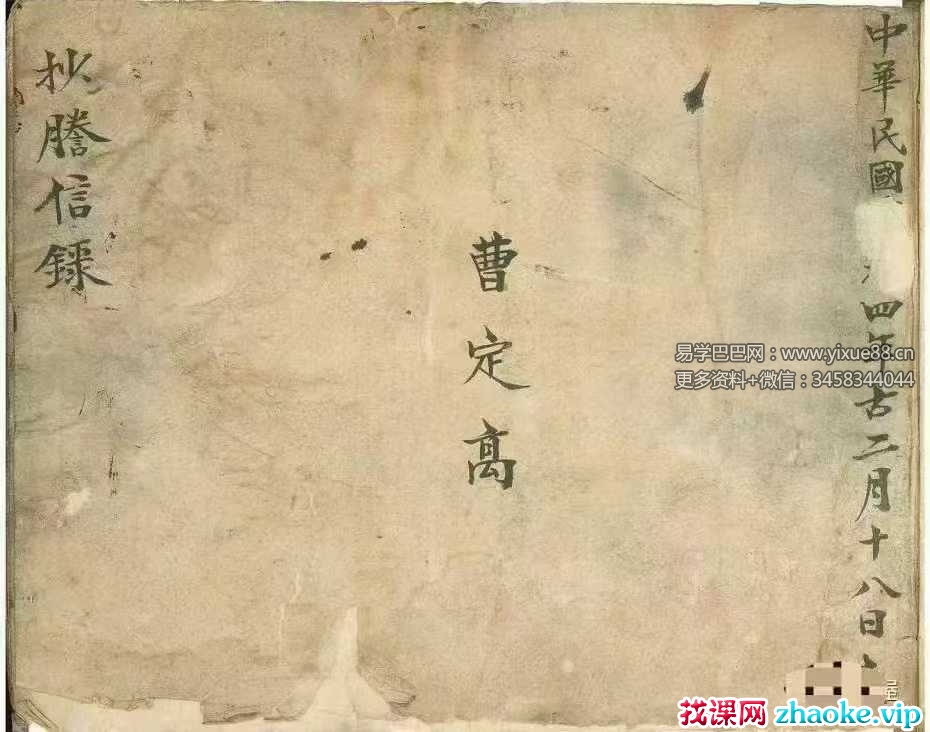 中華民國
四年古二月十八日
曹定高
抄謄信錄
易学巴巴网：www.yixue88.cn
更多资料+微信：3458344044
找课网 zhaoke.vip